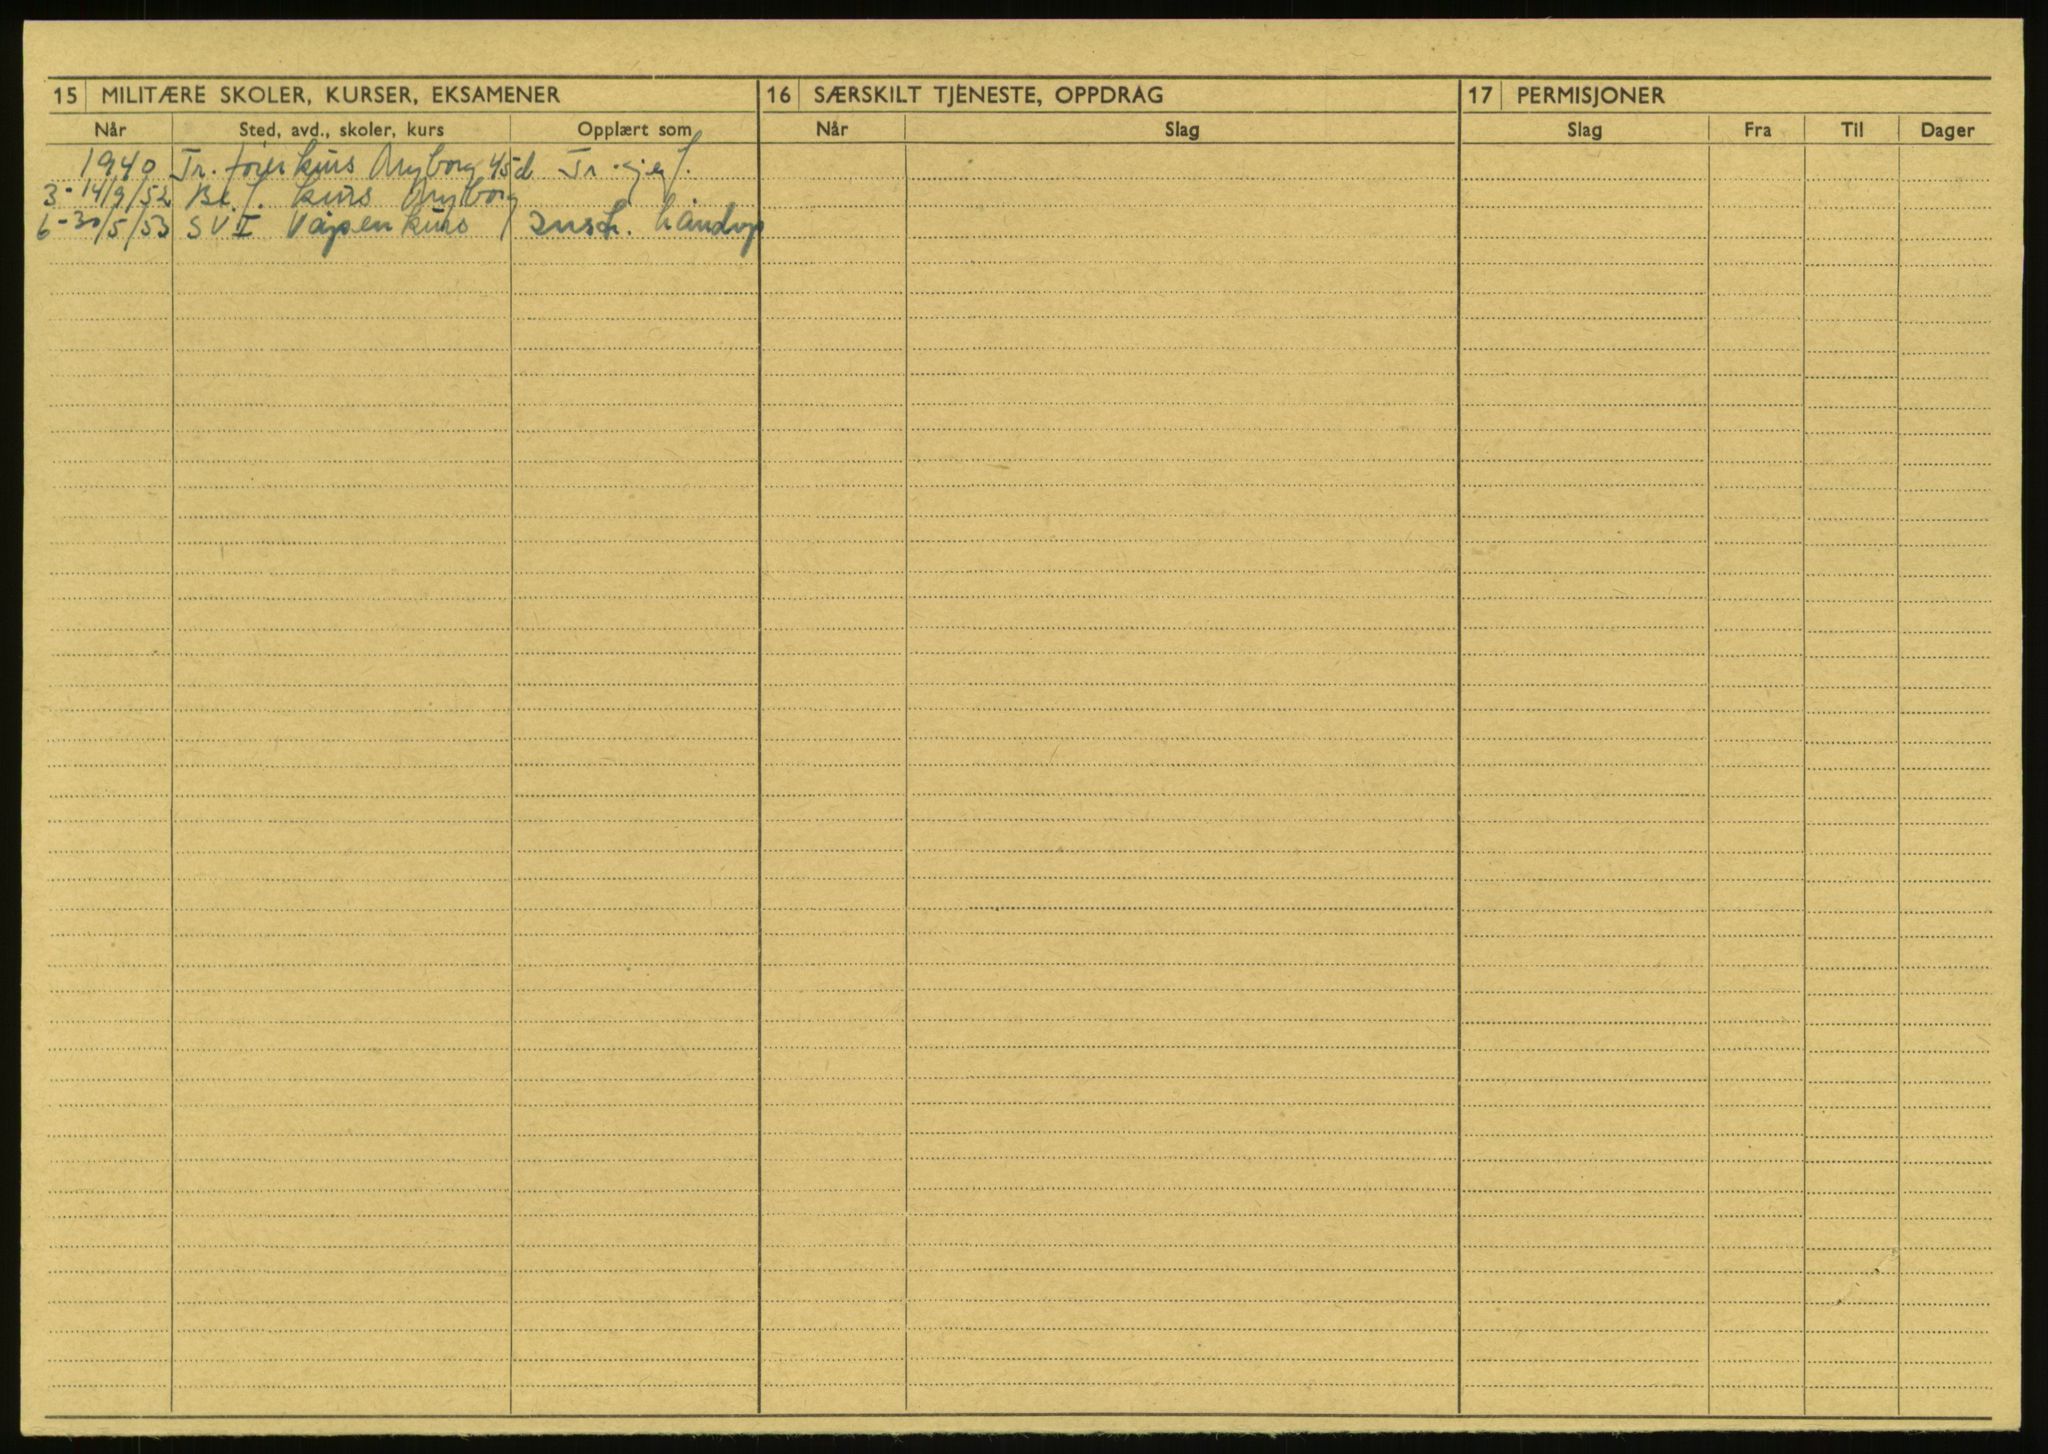 15 MILITÆRE SKOLER, KURSER, EKSAMENER
Når Sted, avd., skoler, kurs Opplært som
1940 Tr. fører kurs Nyborg 45 d Tr. sjef.
3-14/9/52 Bef. kurs Nyborg
6-30/5/53 SV II Våpenkurs Instr. håndvp
16 SÆRSKILT TJENESTE, OPPDRAG
Når Slag
17 PERMISJONER
Slag Fra Til Dager